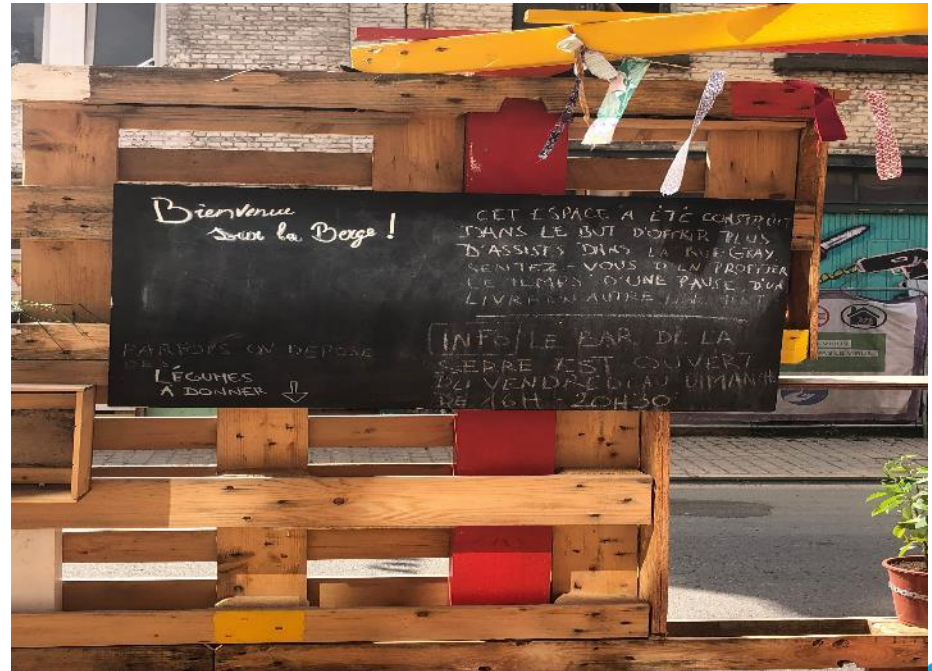 Bienvenue
sur la Berge !
CET ESPACE A ÉTÉ CONSTRUIT
DANS LE BUT D'OFFRIR PLUS
D'ASSISES DANS LA RUE GRAY
SENTEZ-VOUS D'EN PROFITER
LE TEMPS D'UNE PAUSE, D'UN
LIVRE
PARFOIS ON DÉPOSE
DES
LÉGUMES
À DONNER
INFO LE BAR DE LA
SERRE EST OUVERT
DU VENDREDI AU DIMANCHE
DE 16H - 20H30